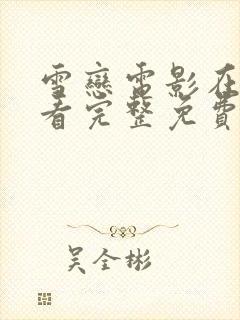 雪戀電影在
看完整免費
吳全彬